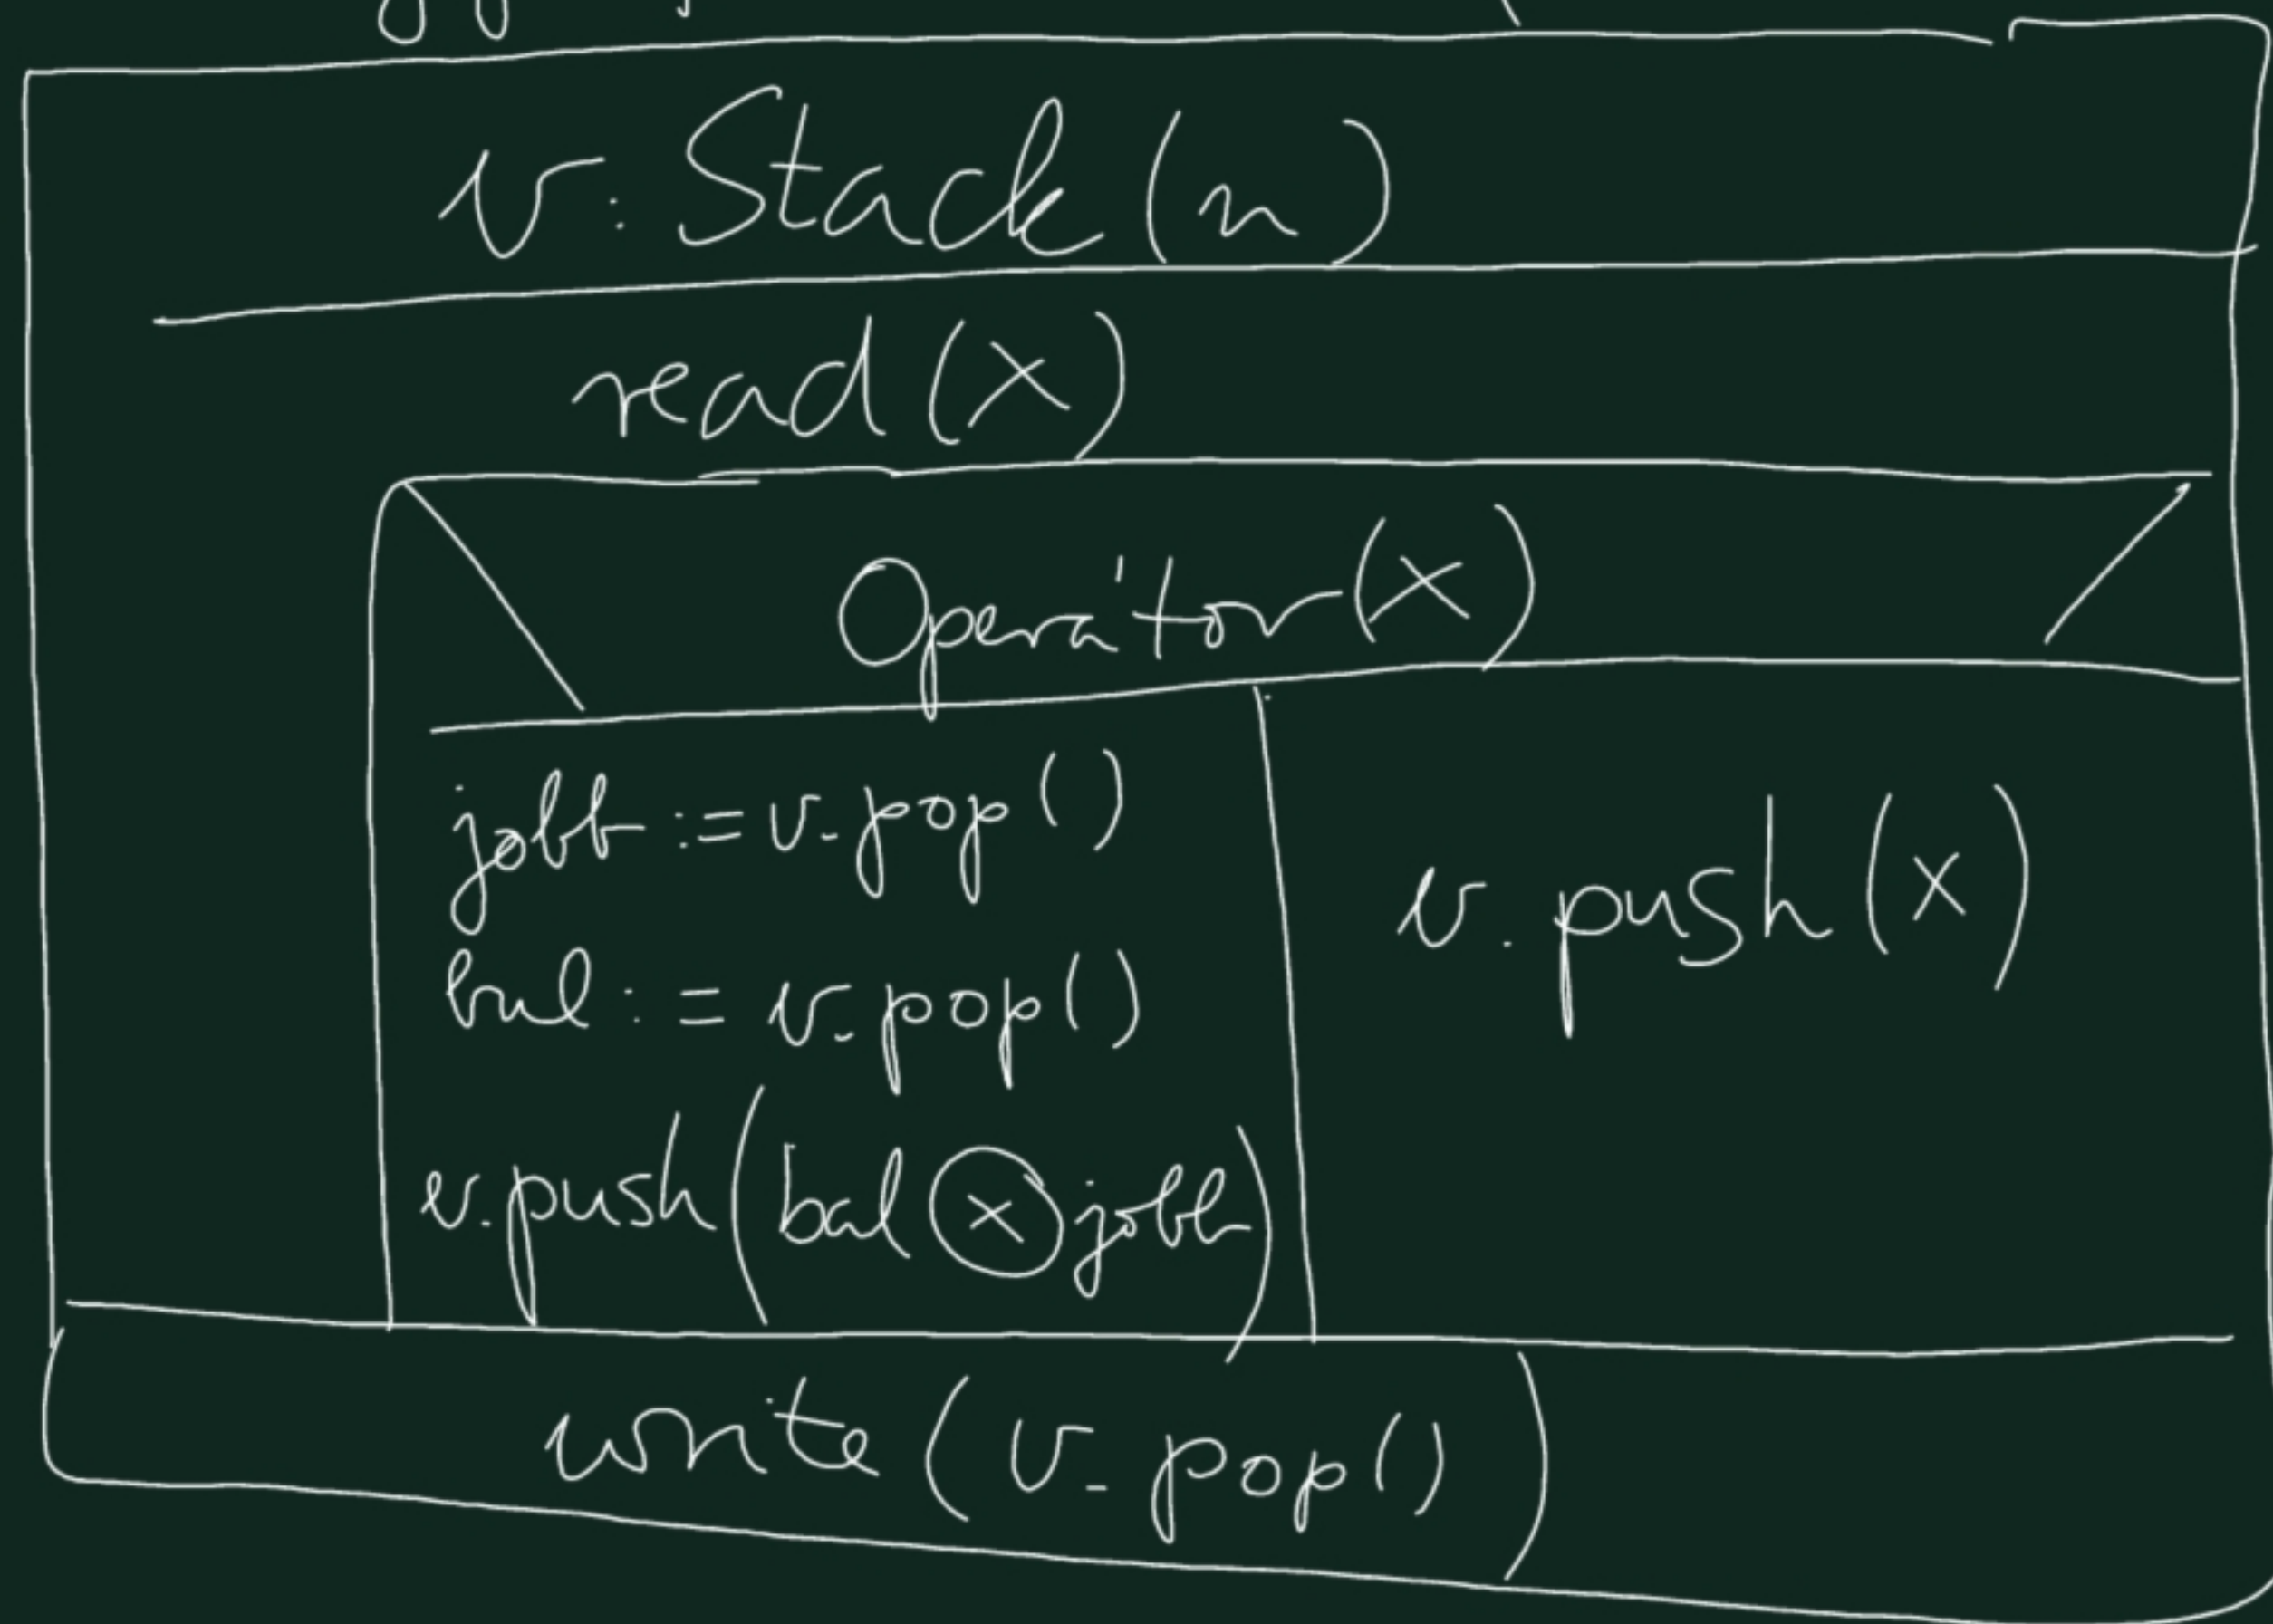 v: Stack(n)
read(x)
Operátor(x)
jobb := v.pop()
bal := v.pop()
v.push(bal ⓧ jobb)
v.push(x)
write(v.pop())